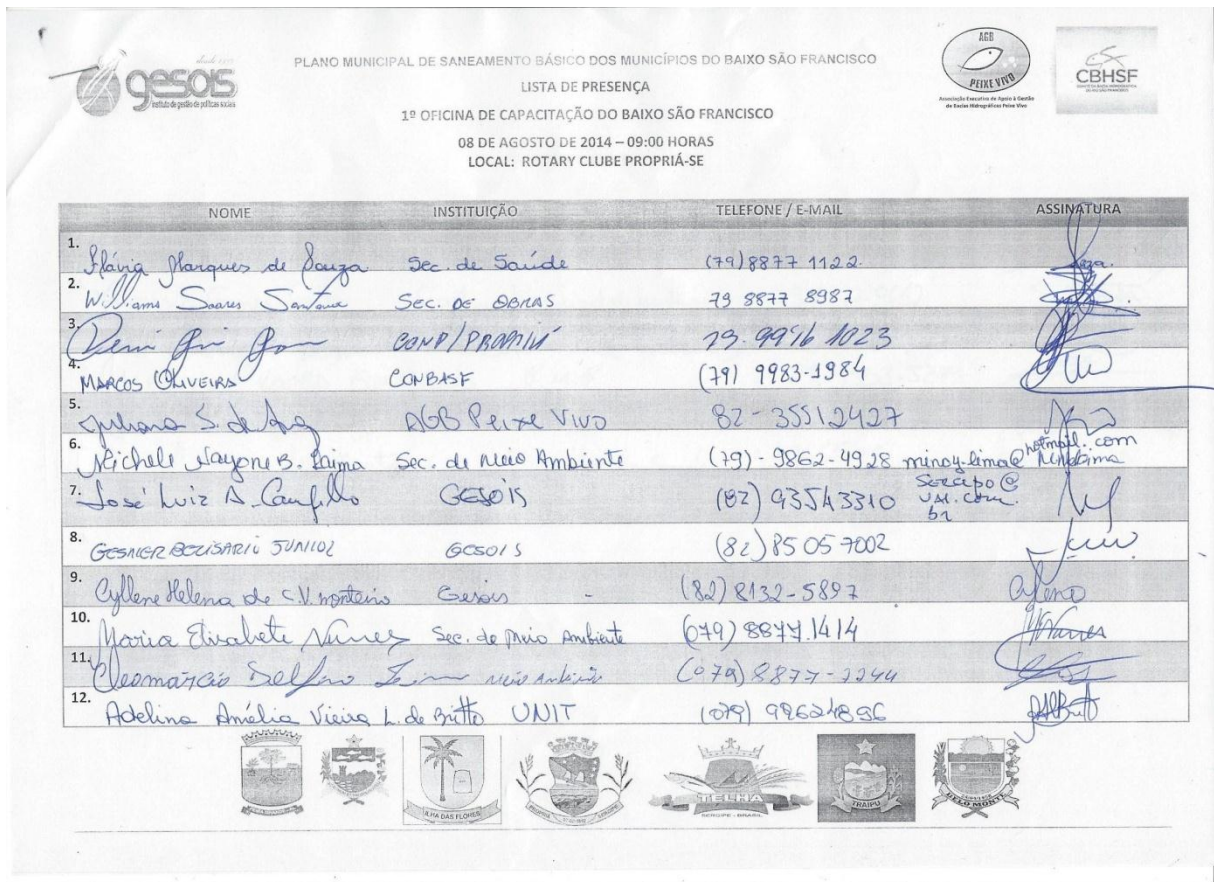 desde 1999
gesois
instituto de gestão de políticas sociais
PLANO MUNICIPAL DE SANEAMENTO BÁSICO DOS MUNICÍPIOS DO BAIXO SÃO FRANCISCO
LISTA DE PRESENÇA
1º OFICINA DE CAPACITAÇÃO DO BAIXO SÃO FRANCISCO
08 DE AGOSTO DE 2014 – 09:00 HORAS
LOCAL: ROTARY CLUBE PROPRIÁ-SE
AGB
PEIXE VIVO
Associação Executiva de Apoio à Gestão
de Bacias Hidrográficas Peixe Vivo
CBHSF
NOME INSTITUIÇÃO TELEFONE / E-MAIL ASSINATURA
1. Flávia Marques de Souza Sec. de Saúde (79) 8877 1122
2. Williams Soares Santana Sec. DE OBRAS 79 8877 8987
3. 79. 9916 1023
4. MARCOS OLIVEIRA CONBASF (79) 9983-1984
5. Juliana S. de AGB Peixe Vivo 82 - 35512427
6. Michele Nayone B. Lima Sec. de Meio Ambiente (79) - 9862-4928 minoy-lima@hotmail.com
7. José Luiz A. GESOIS (82) 93543310
8. GESNER BELISARIO JUNIOR GESOIS (82) 85 05 7002
9. Cyllene Helena de C.V. monteiro Gesois - (82) 8132-5897 Cyllene
10. Maria Elisabete Nunes Sec. de Meio Ambiente (079) 8877.1414
11. Cleomarcio Meio Ambiente (079) 8877-
12. Adelina Amélia Vieira L. de Britto UNIT (079) 99624896
ILHA DAS FLORES
TELHA
SERGIPE - BRASIL
TRAIPU
BELO MONTE